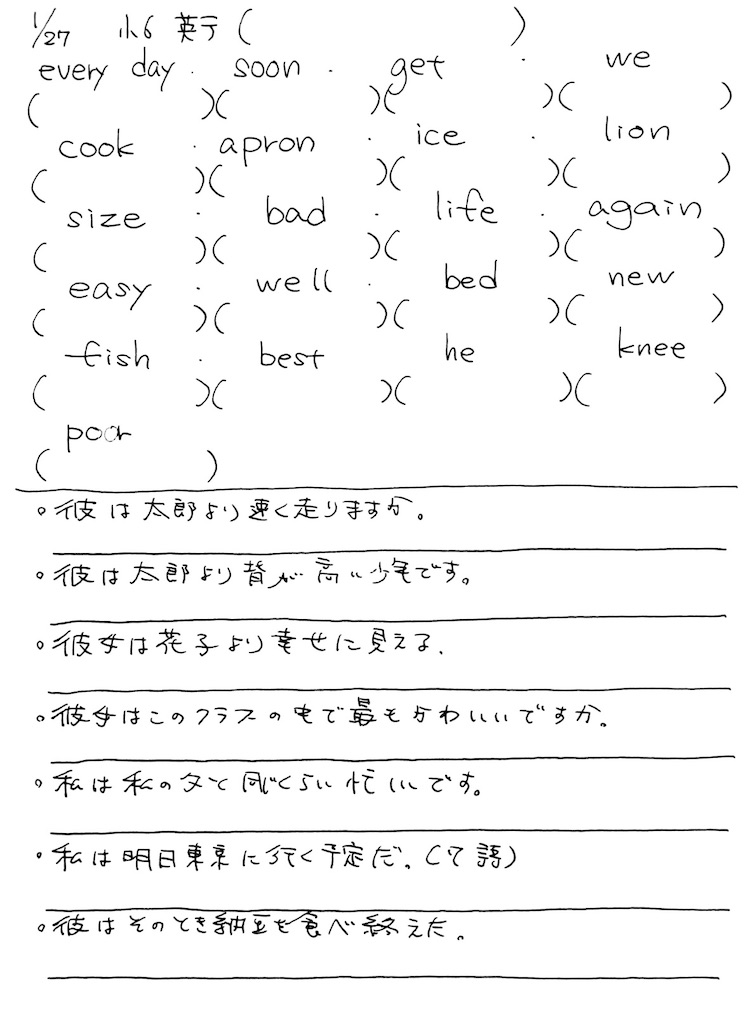 1/27 小6 英テ ( )
every day ・ soon ・ get ・ we
( )( )( )( )
cook ・ apron ・ ice ・ lion
( )( )( )( )
size ・ bad ・ life ・ again
( )( )( )( )
easy ・ well ・ bed new
( )( )( )( )
fish ・ best he knee
( )( )( )( )
poor
( )
○彼は太郎より速く走りますか。
○彼は太郎より背が高い少年です。
○彼女は花子より幸せに見える.
○彼女はこのクラスの中で最もかわいいですか。
○私は私の父と同じくらい忙しいです。
・私は明日東京に行く予定だ。(7語)
○彼はそのとき納豆を食べ終えた。